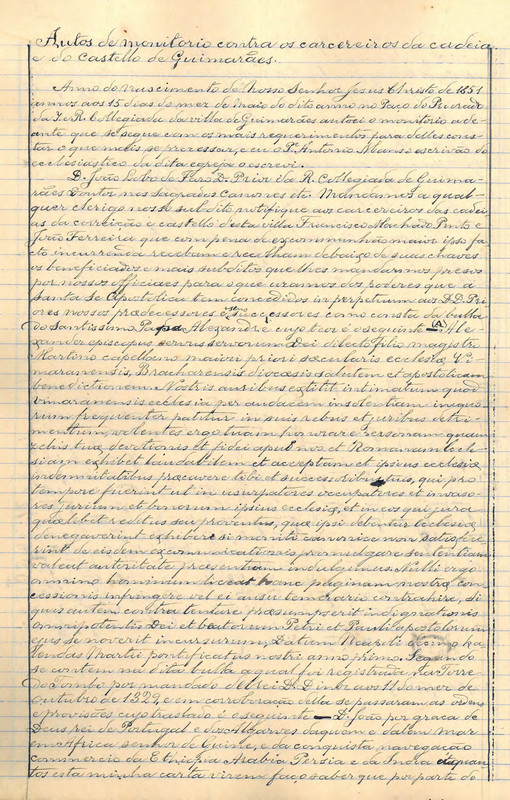 Autos de monitorio contra os carcereiros da cadeia
e do Castello de Guimarães.
Anno do nascimento de Nosso Senhor Jesus Christo de 1651
annos aos 15 dias do mez de maio do dito anno no Paço do Priorado
da I. e R. Collegiada da villa de Guimarães autuei o monitorio a de-
ante que se segue com os mais requerimentos para delles cons-
tar o que mais se processar, e eu o Pe. Antonio Manso escrivão do
ecclesiastico da dita egreja o escrevi.
D. João Lobo de Faro D. Prior da R. Collegiada de Guima-
rães Doutor nos Sagrados Canones etc. Mandamos a qual-
quer clerigo nosso subdito notifique aos carcereiros das cadei-
as da correição e castello desta villa Francisco Machado Pinto e
João Ferreira que com pena de excommunhão maior ipso fa-
cto incurrenda recebam e recolham debaixo de suas chaves
os beneficiados e mais subditos que lhes mandarmos presos
por nossos officiaes para o que usamos dos poderes que a
Santa Sé Apostolica tem concedidos in perpetuum aos D. D. Pri-
ores nossos predecessores e successores como consta da bulla
do Santissimo Papa Alexandre cujo teor é o seguinte — (A) Ale-
xander episcopus servus servorum Dei dilecto filio magistro
Martino capellano maiori priori sæcularis ecclesiæ Vi-
maranensis, Bracharensis diocæsis salutem et apostolicam
benedictionem. Nostris auribus extitit intimatum quod
Vimaranensis ecclesia per audaciam insolentium iniquo-
rum frequenter patitur in suis rebus et juribus detri-
mentum, volentes ergo tuam honorare personam quam
erchis tuæ devotionis et fidei aput nos et Romanam Eccle-
siam exhibet laudabilem et acceptam et ipsius ecclesiæ
indemnitatibus præcavere tibi et successoribus tuis, qui pro
tempore fuerint ut in usurpatores occupatores et invaso-
res jurium et bonorum ipsius ecclesiæ, et in eos qui jura
quælibet reditus seu proventus, quæ ipsi debentur ecclesiæ
denegaverint exhibere si moniti canonice non satisfece-
rint de eisdem excommunicationis promulgare sententiam
valeat autoritate præsentium indulgemus. Nulli ergo
omnino hominum liceat hanc paginam nostræ con-
cessionis infringere vel ei ausu temerario contrahire, si
quis autem contra tentare præsumpserit indignationis
omnipotentis Dei et beatorum Petri et Pauli apostolorum
ejus se noverit incursurum, Datum Neapoli decimo ka-
lendas Martii pontificatus nostri anno primo. Segundo
se contem na dita bulla a qual foi registrada na Torre
do Tombo por mandado del rei D. Diniz aos 11 do mez de
outubro de 1329, e em corroboração della se passaram as ordens
e provisões cujo traslado é o seguinte — D. João por graça de
Deus rei de Portugal e dos Algarves daquem e dalem mar
em Africa senhor de Guiné, e da conquista navegação
commercio da Ethiopia Arabia Persia e da India a quan-
tos esta minha carta virem faço saber que por parte do